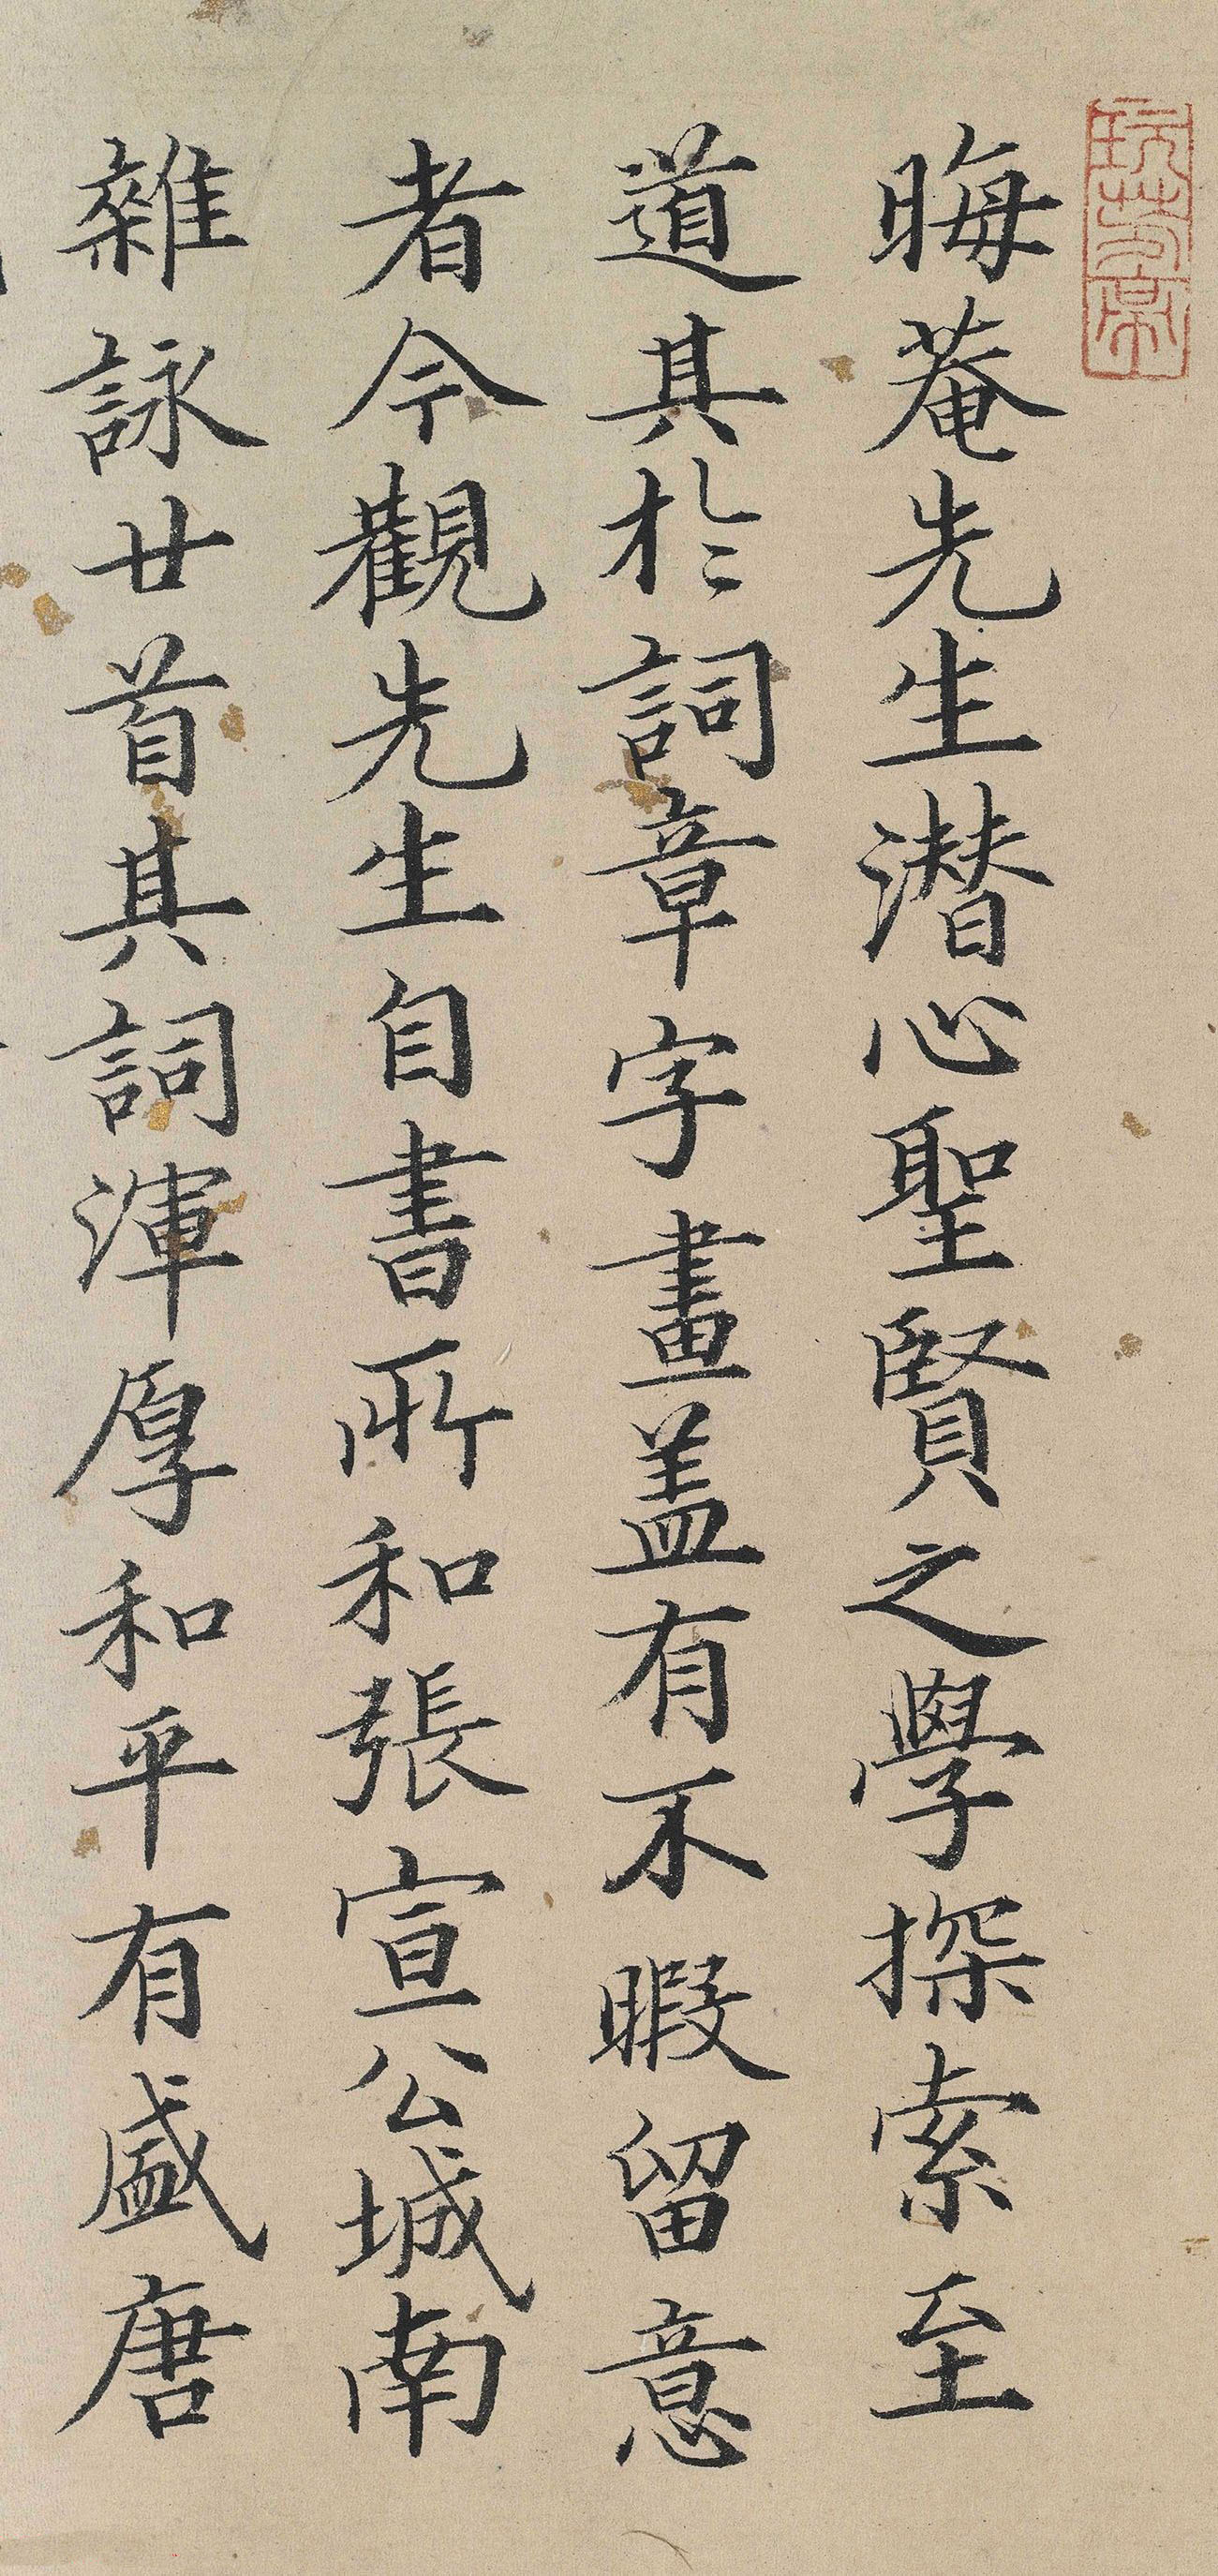 晦菴先生潜心聖賢之學探索至
道其於詞章字畫盖有不暇留意
者今觀先生自書所和張宣公城南
雜詠廿首其詞渾厚和平有盛唐